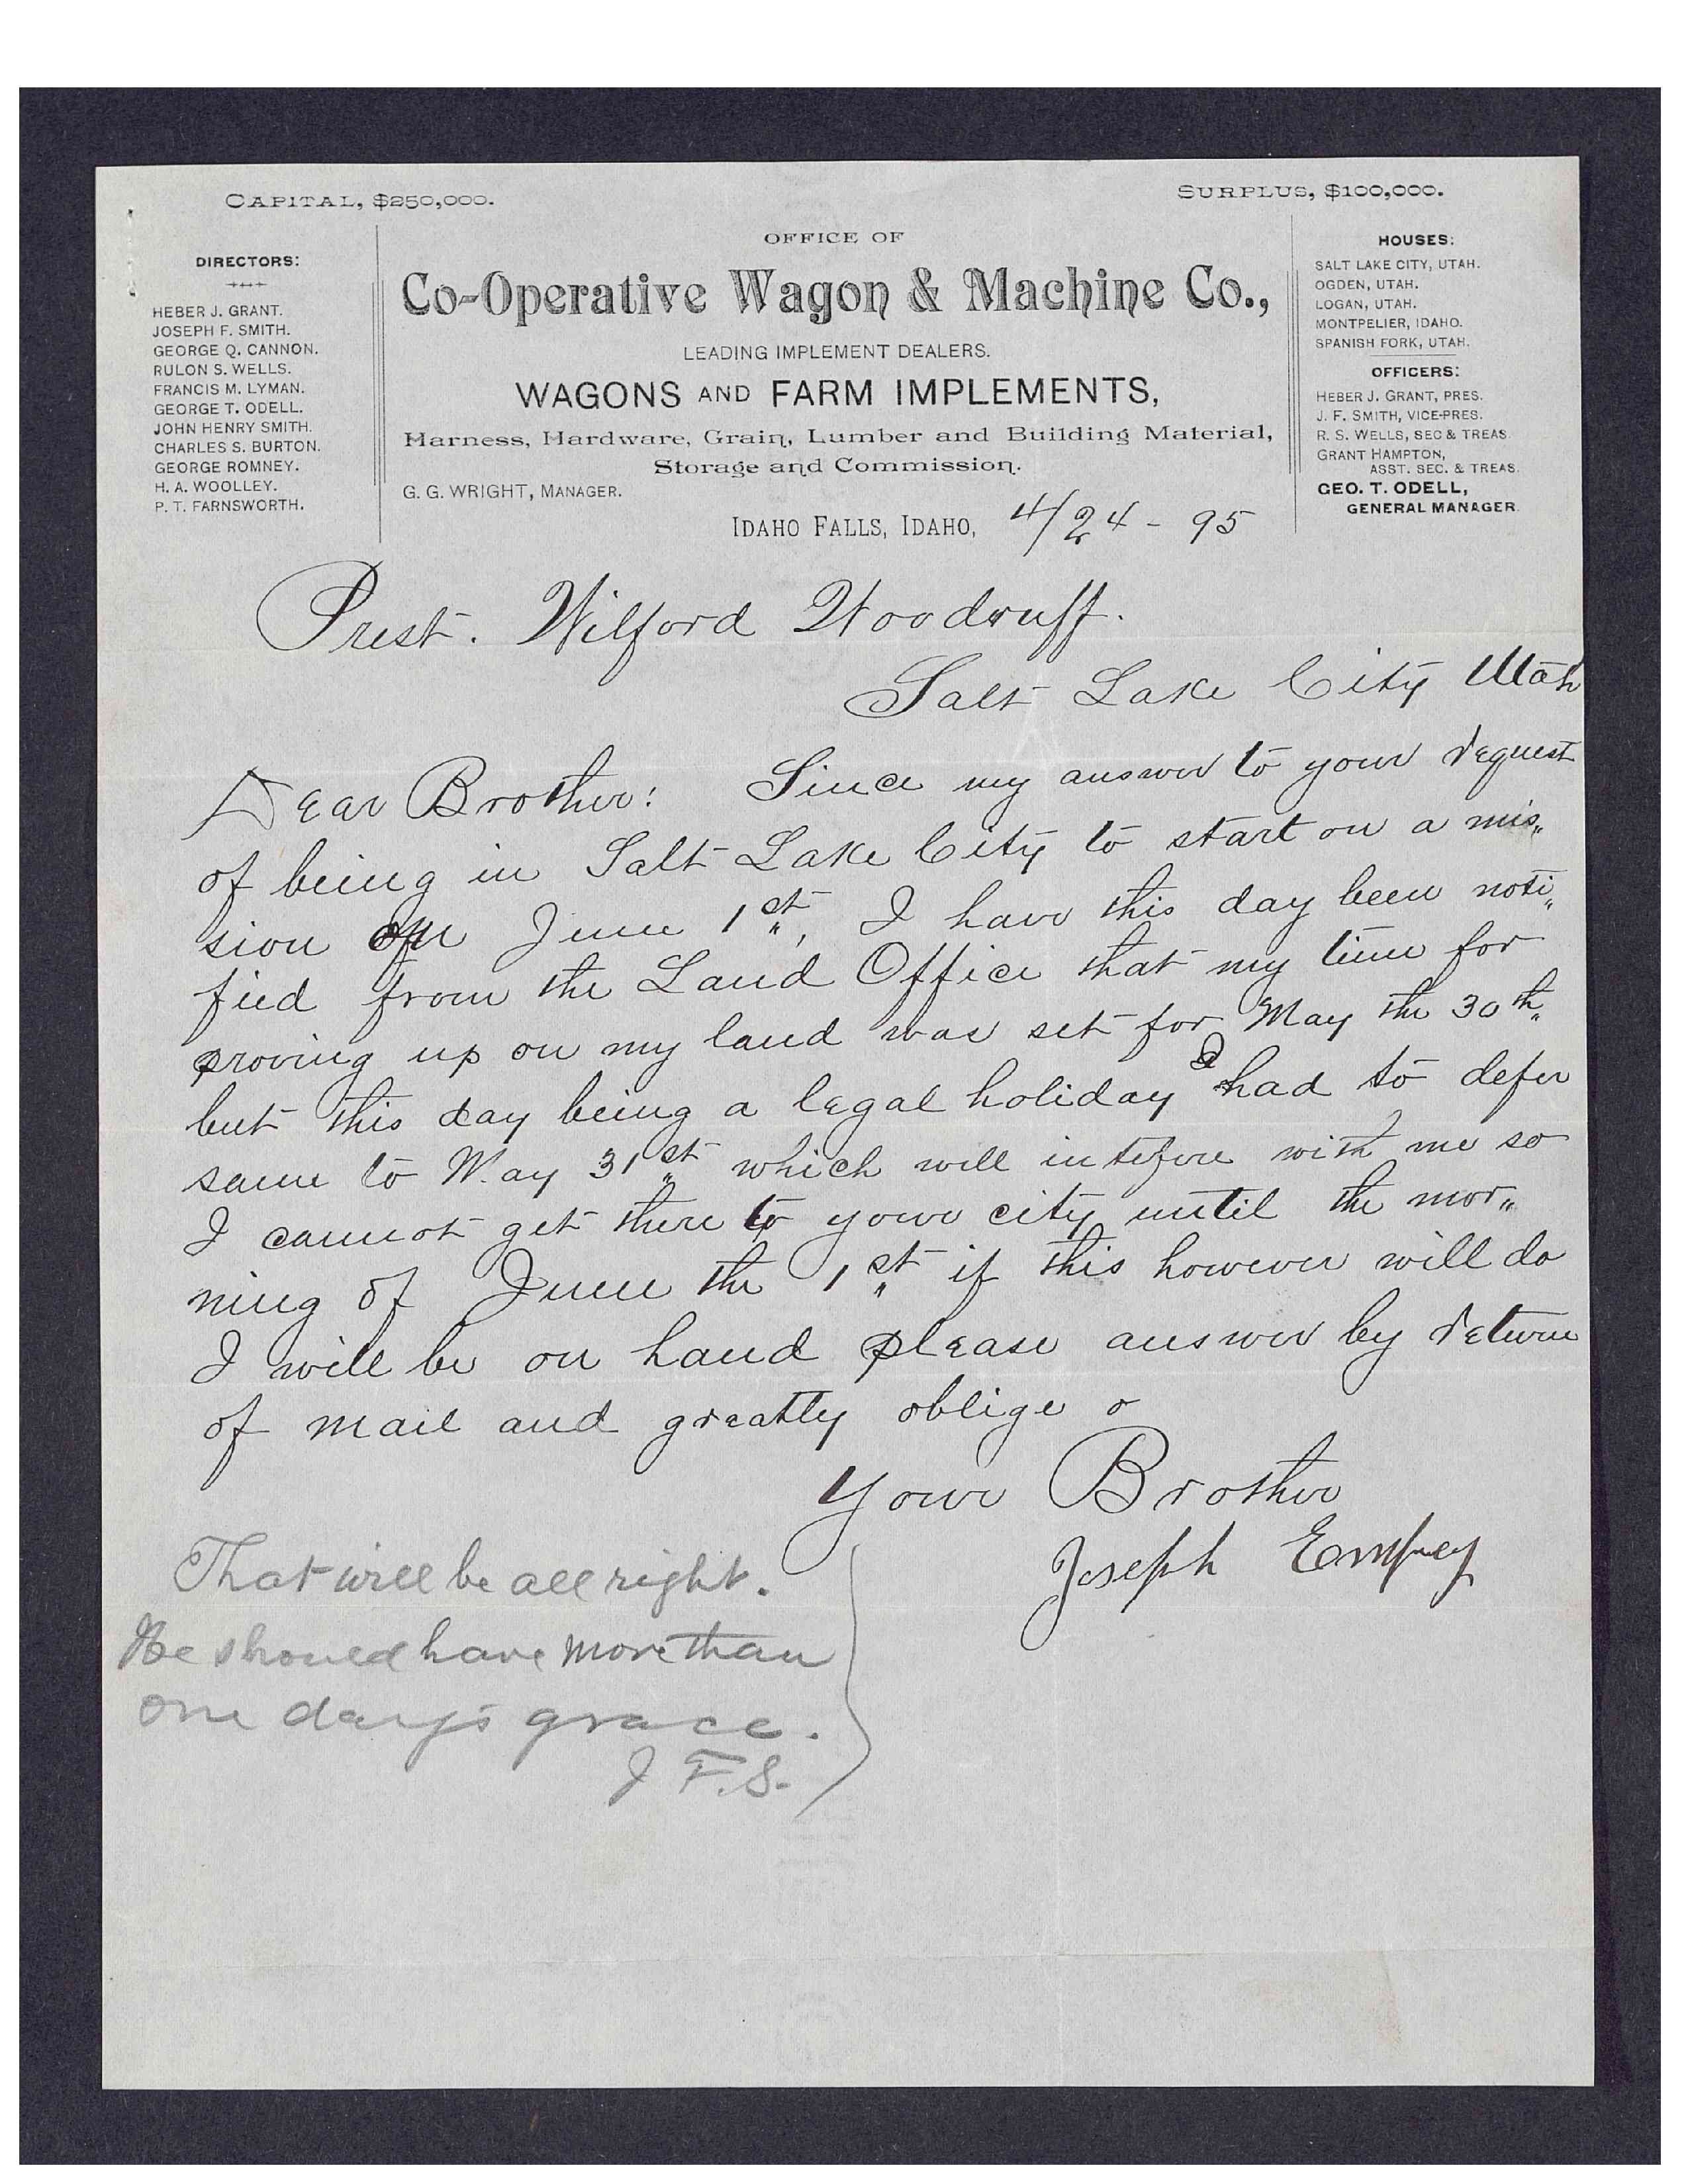 CAPITAL, $250,000.
SURPLUS, $100,000.
DIRECTORS:
HEBER J. GRANT.
JOSEPH F. SMITH.
GEORGE Q. CANNON.
RULON S. WELLS.
FRANCIS M. LYMAN.
GEORGE T. ODELL.
JOHN HENRY SMITH.
CHARLES S. BURTON.
GEORGE ROMNEY.
H. A. WOOLLEY.
P. T. FARNSWORTH.
OFFICE OF
Co-Operative Wagon & Machine Co.,
LEADING IMPLEMENT DEALERS.
WAGONS AND FARM IMPLEMENTS,
Harness, Hardware, Grain, Lumber and Building Material,
Storage and Commission.
G. G. WRIGHT, MANAGER.
IDAHO FALLS, IDAHO, 4/24 - 95
HOUSES:
SALT LAKE CITY, UTAH.
OGDEN, UTAH.
LOGAN, UTAH.
MONTPELIER, IDAHO.
SPANISH FORK, UTAH.
OFFICERS:
HEBER J. GRANT, PRES.
J. F. SMITH, VICE-PRES.
R. S. WELLS, SEC & TREAS.
GRANT HAMPTON,
ASST. SEC. & TREAS.
GEO. T. ODELL,
GENERAL MANAGER.
Prest. Wilford Woodruff.
Salt Lake City Utah
Dear Brother: Since my answer to your request
of being in Salt Lake City to start on a mis„
sion on June 1st, I have this day been noti„
fied from the Land Office that my time for
proving up on my land was set for May the 30th
but this day being a legal holiday I had to defer
same to May 31st which will intefere with me so
I cannot get there to your city until the mor„
ning of June the 1st if this however will do
I will be on hand please answer by return
of mail and greatly oblige
Your Brother
Joseph Empey
That will be all right.
He should have more than
one day's grace.
J F.S.